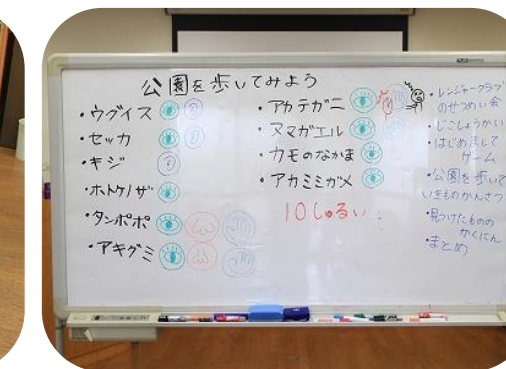 公園を歩いてみよう
・ウグイス
・セッカ
・キジ
・ホトケノザ
・タンポポ
・アキグミ
・アカテガニ
・ヌマガエル
・カモのなかま
・アカミミガメ
10しゅるい!
・レンジャークラブ
のせつめい会
・じこしょうかい
・はじめまして
ゲーム
・公園を歩いて
いきものかんさつ
・見つけたものの
かくにん
・まとめ